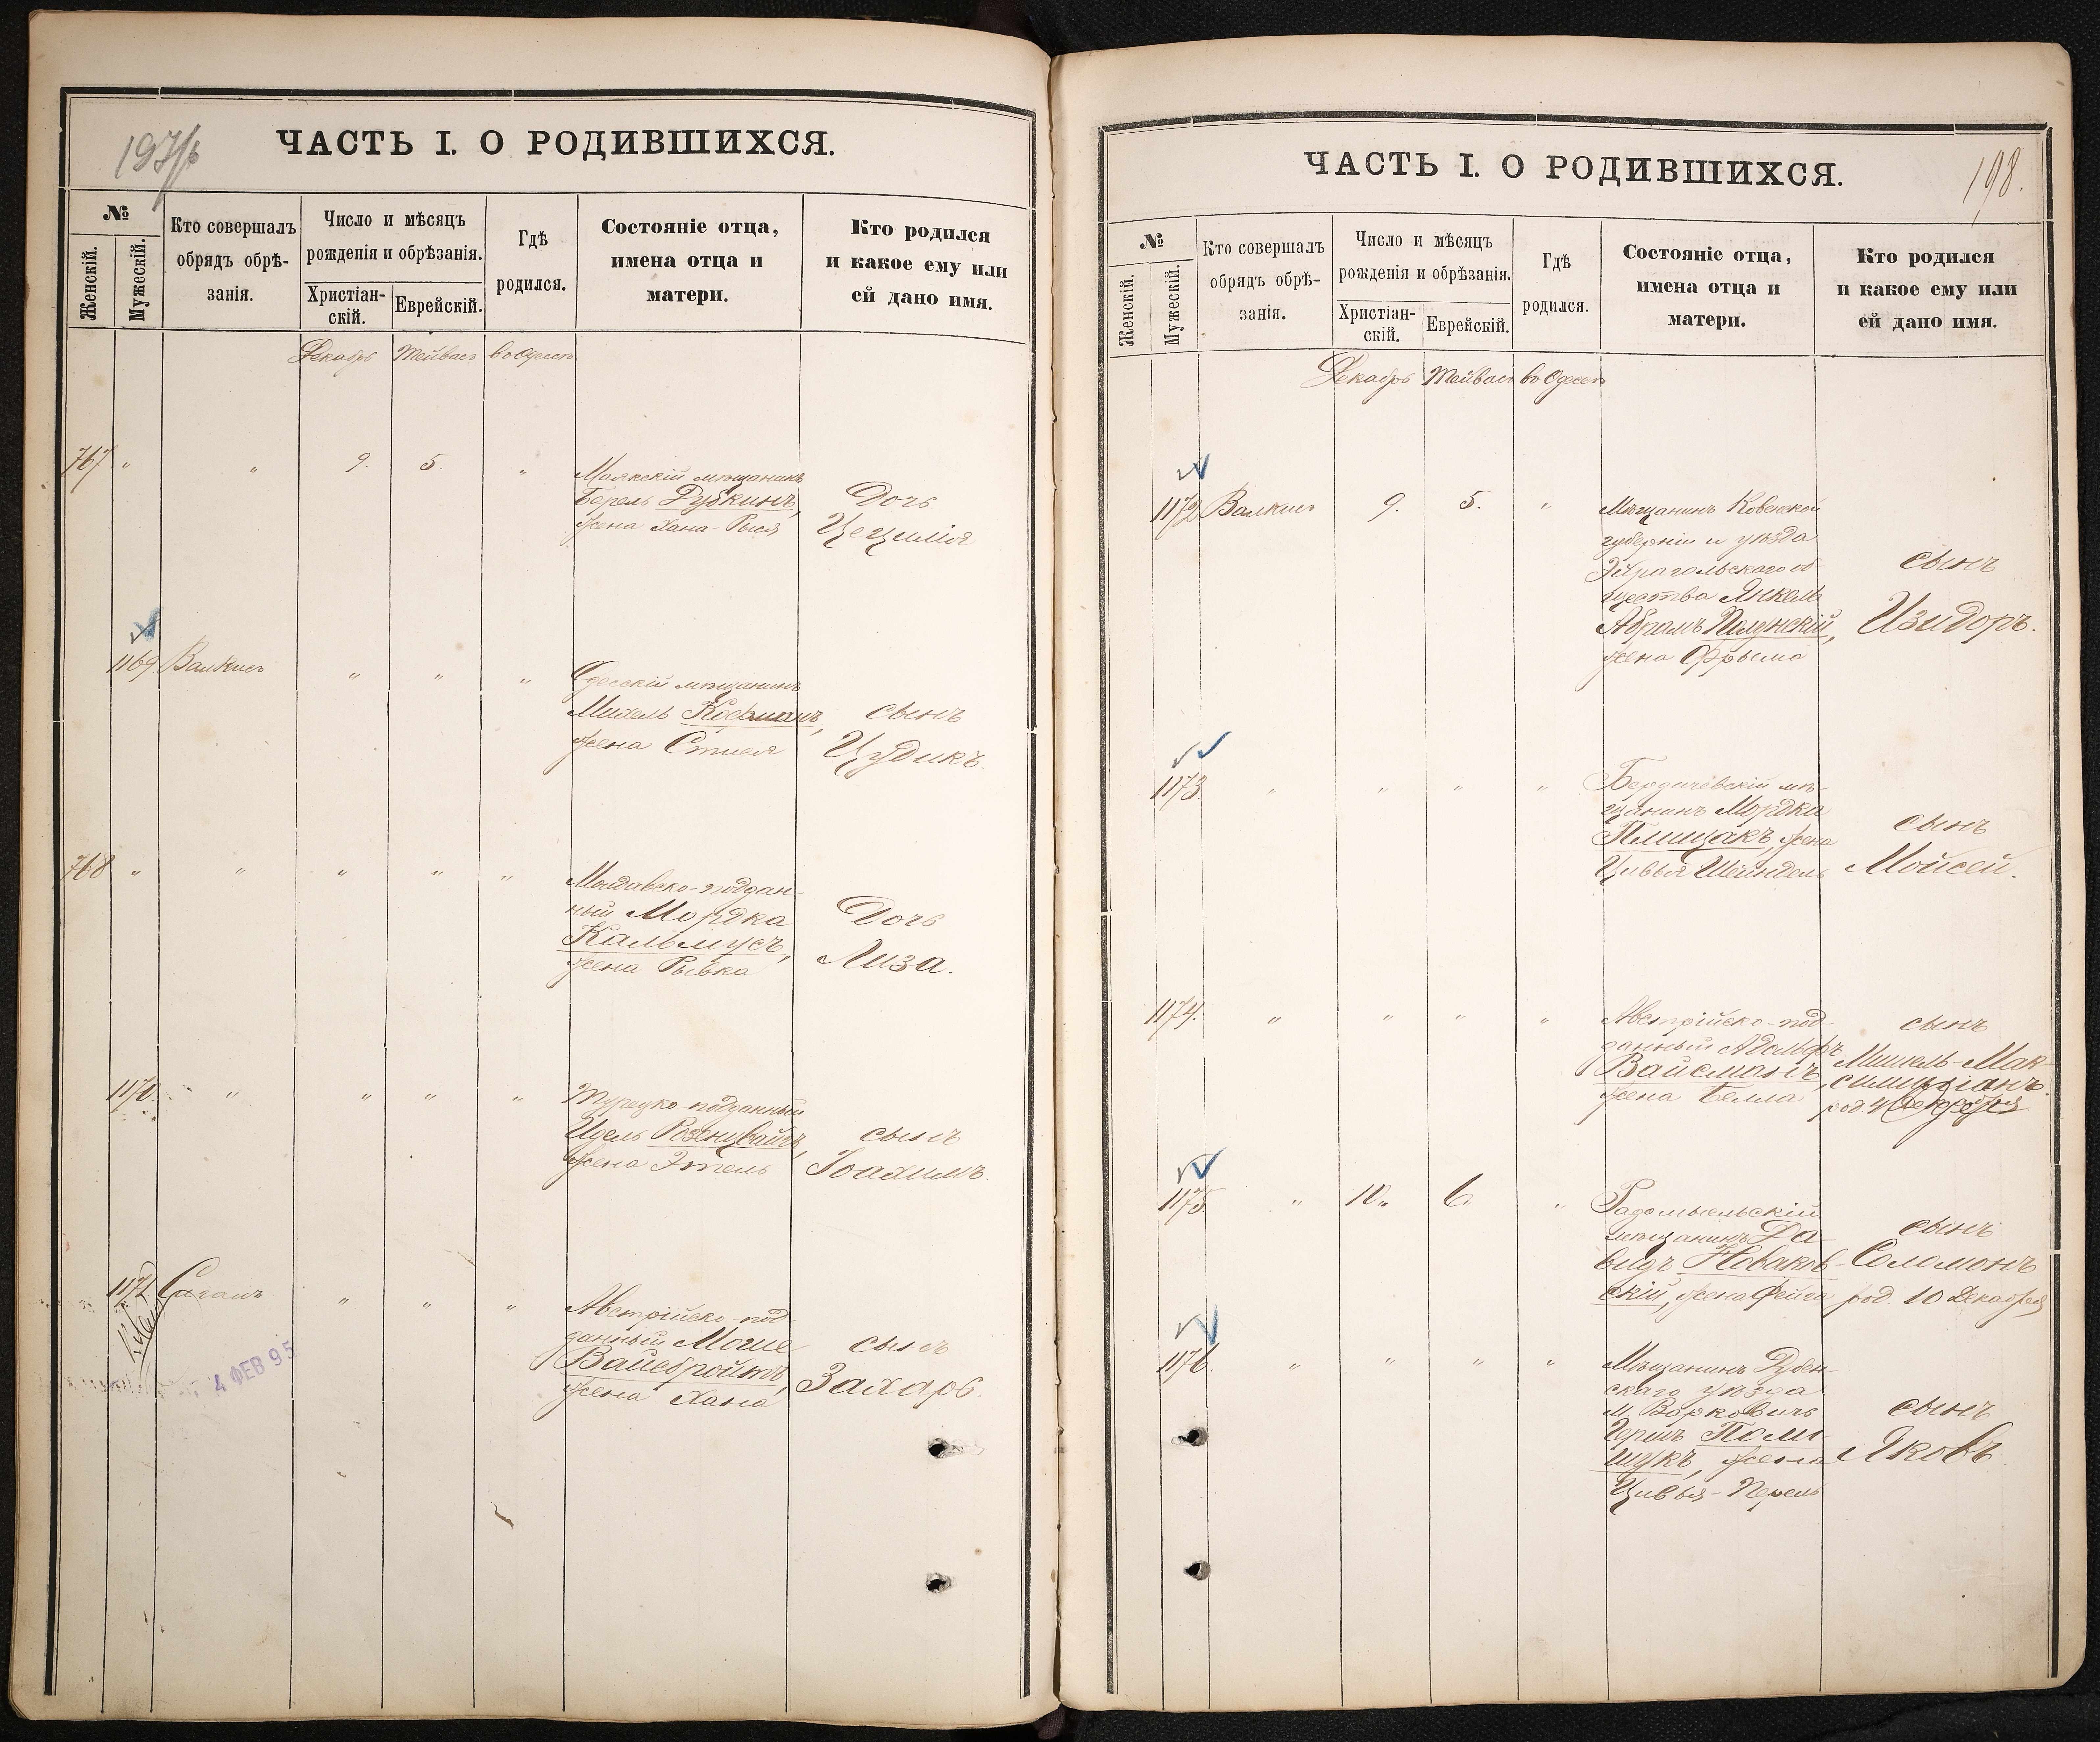 197/б
ЧАСТЬ I. О РОДИВШИХСЯ.
№
Женскій.
Мужескій.
Кто совершалъ
обрядъ обрѣ-
занія.
Число и мѣсяцъ
рожденія и обрѣзанія.
Христіан-
скій.
Еврейскій.
Гдѣ
родился.
Состояніе отца,
имена отца и
матери.
Кто родился
и какое ему или
ей дано имя.
Декабрь Тейвасъ во Одессѣ
767 " " 9. 5. "
Маякскій мѣщанинъ
Берель Рубкинъ,
жена Хана-Рыся
Дочь
Цецилія
1169 Валкисъ " " "
Одесскій мѣщанинъ
Михель Кофманъ,
жена Стися
сынъ
Цудикъ.
768 " " " " "
Молдавско-поддан-
ный Мордка
Кальмусъ,
жена Рывка
Дочь
Лиза.
1170. " " " "
Турецко-подданный
Идель Розенцвайгъ,
жена Этель
сынъ
Іоахимъ.
1171 Саганъ " " "
4 ФЕВ 95
Австрійско-под-
данный Моше
Вайсбройтъ,
жена Хана
сынъ
Захаръ.
198.
ЧАСТЬ I. О РОДИВШИХСЯ.
№
Женскій.
Мужескій.
Кто совершалъ
обрядъ обрѣ-
занія.
Число и мѣсяцъ
рожденія и обрѣзанія.
Христіан-
скій.
Еврейскій.
Гдѣ
родился.
Состояніе отца,
имена отца и
матери.
Кто родился
и какое ему или
ей дано имя.
Декабрь Тейвасъ во Одессѣ
1172 Валкисъ 9. 5. "
Мѣщанинъ Ковенской
губерніи и уѣзда
Эйрагольскаго об-
щества Янкель
Абрамъ Полунскій,
жена Фрыма
сынъ
Изидоръ.
1173. " " " "
Бердичевскій мѣ-
щанинъ Мордка
Плищакъ, жена
Цивья Шейндель
сынъ
Мойсей.
1174. " " " "
Австрійско-под-
данный Адольфъ
Вайсманъ,
жена Белла
сынъ
Мишель-Мак-
симиліанъ.
род. 4 Декабря
1175. " 10. 6. "
Радомысльскій
мѣщанинъ Да-
видъ Новаков-
скій, жена Фейга
сынъ
Соломонъ
род. 10 Декабря
1176. " " " "
Мѣщанинъ Дубен-
скаго уѣзда
м. Варковичъ
Гершъ Поли-
щукъ, жена
Цивья-Перель
сынъ
Яковъ.